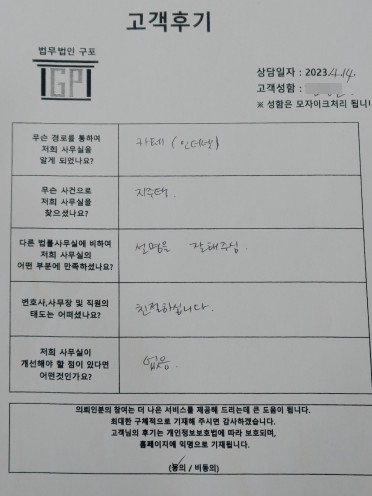 고객후기
법무법인 구포
IGPI
상담일자 : 2023.4.14.
고객성함 :
※ 성함은 모자이크처리 됩니
무슨 경로를 통하여
저희 사무실을
알게 되었나요?
카페 (인터넷)
무슨 사건으로
저희 사무실을
찾으셨나요?
지주택.
다른 법률사무실에 비하여
저희 사무실의
어떤 부분에 만족하셨나요?
설명을 잘해주심.
변호사,사무장 및 직원의
태도는 어떠셨나요?
친절하십니다.
저희 사무실이
개선해야 할 점이 있다면
어떤것인가요?
없음.
의뢰인분의 참여는 더 나은 서비스를 제공해 드리는데 큰 도움이 됩니다.
최대한 구체적으로 기재해 주시면 감사하겠습니다.
고객님의 후기는 개인정보보호법에 따라 보호되며,
홈페이지에 익명으로 기재됩니다.
(동의 / 비동의)